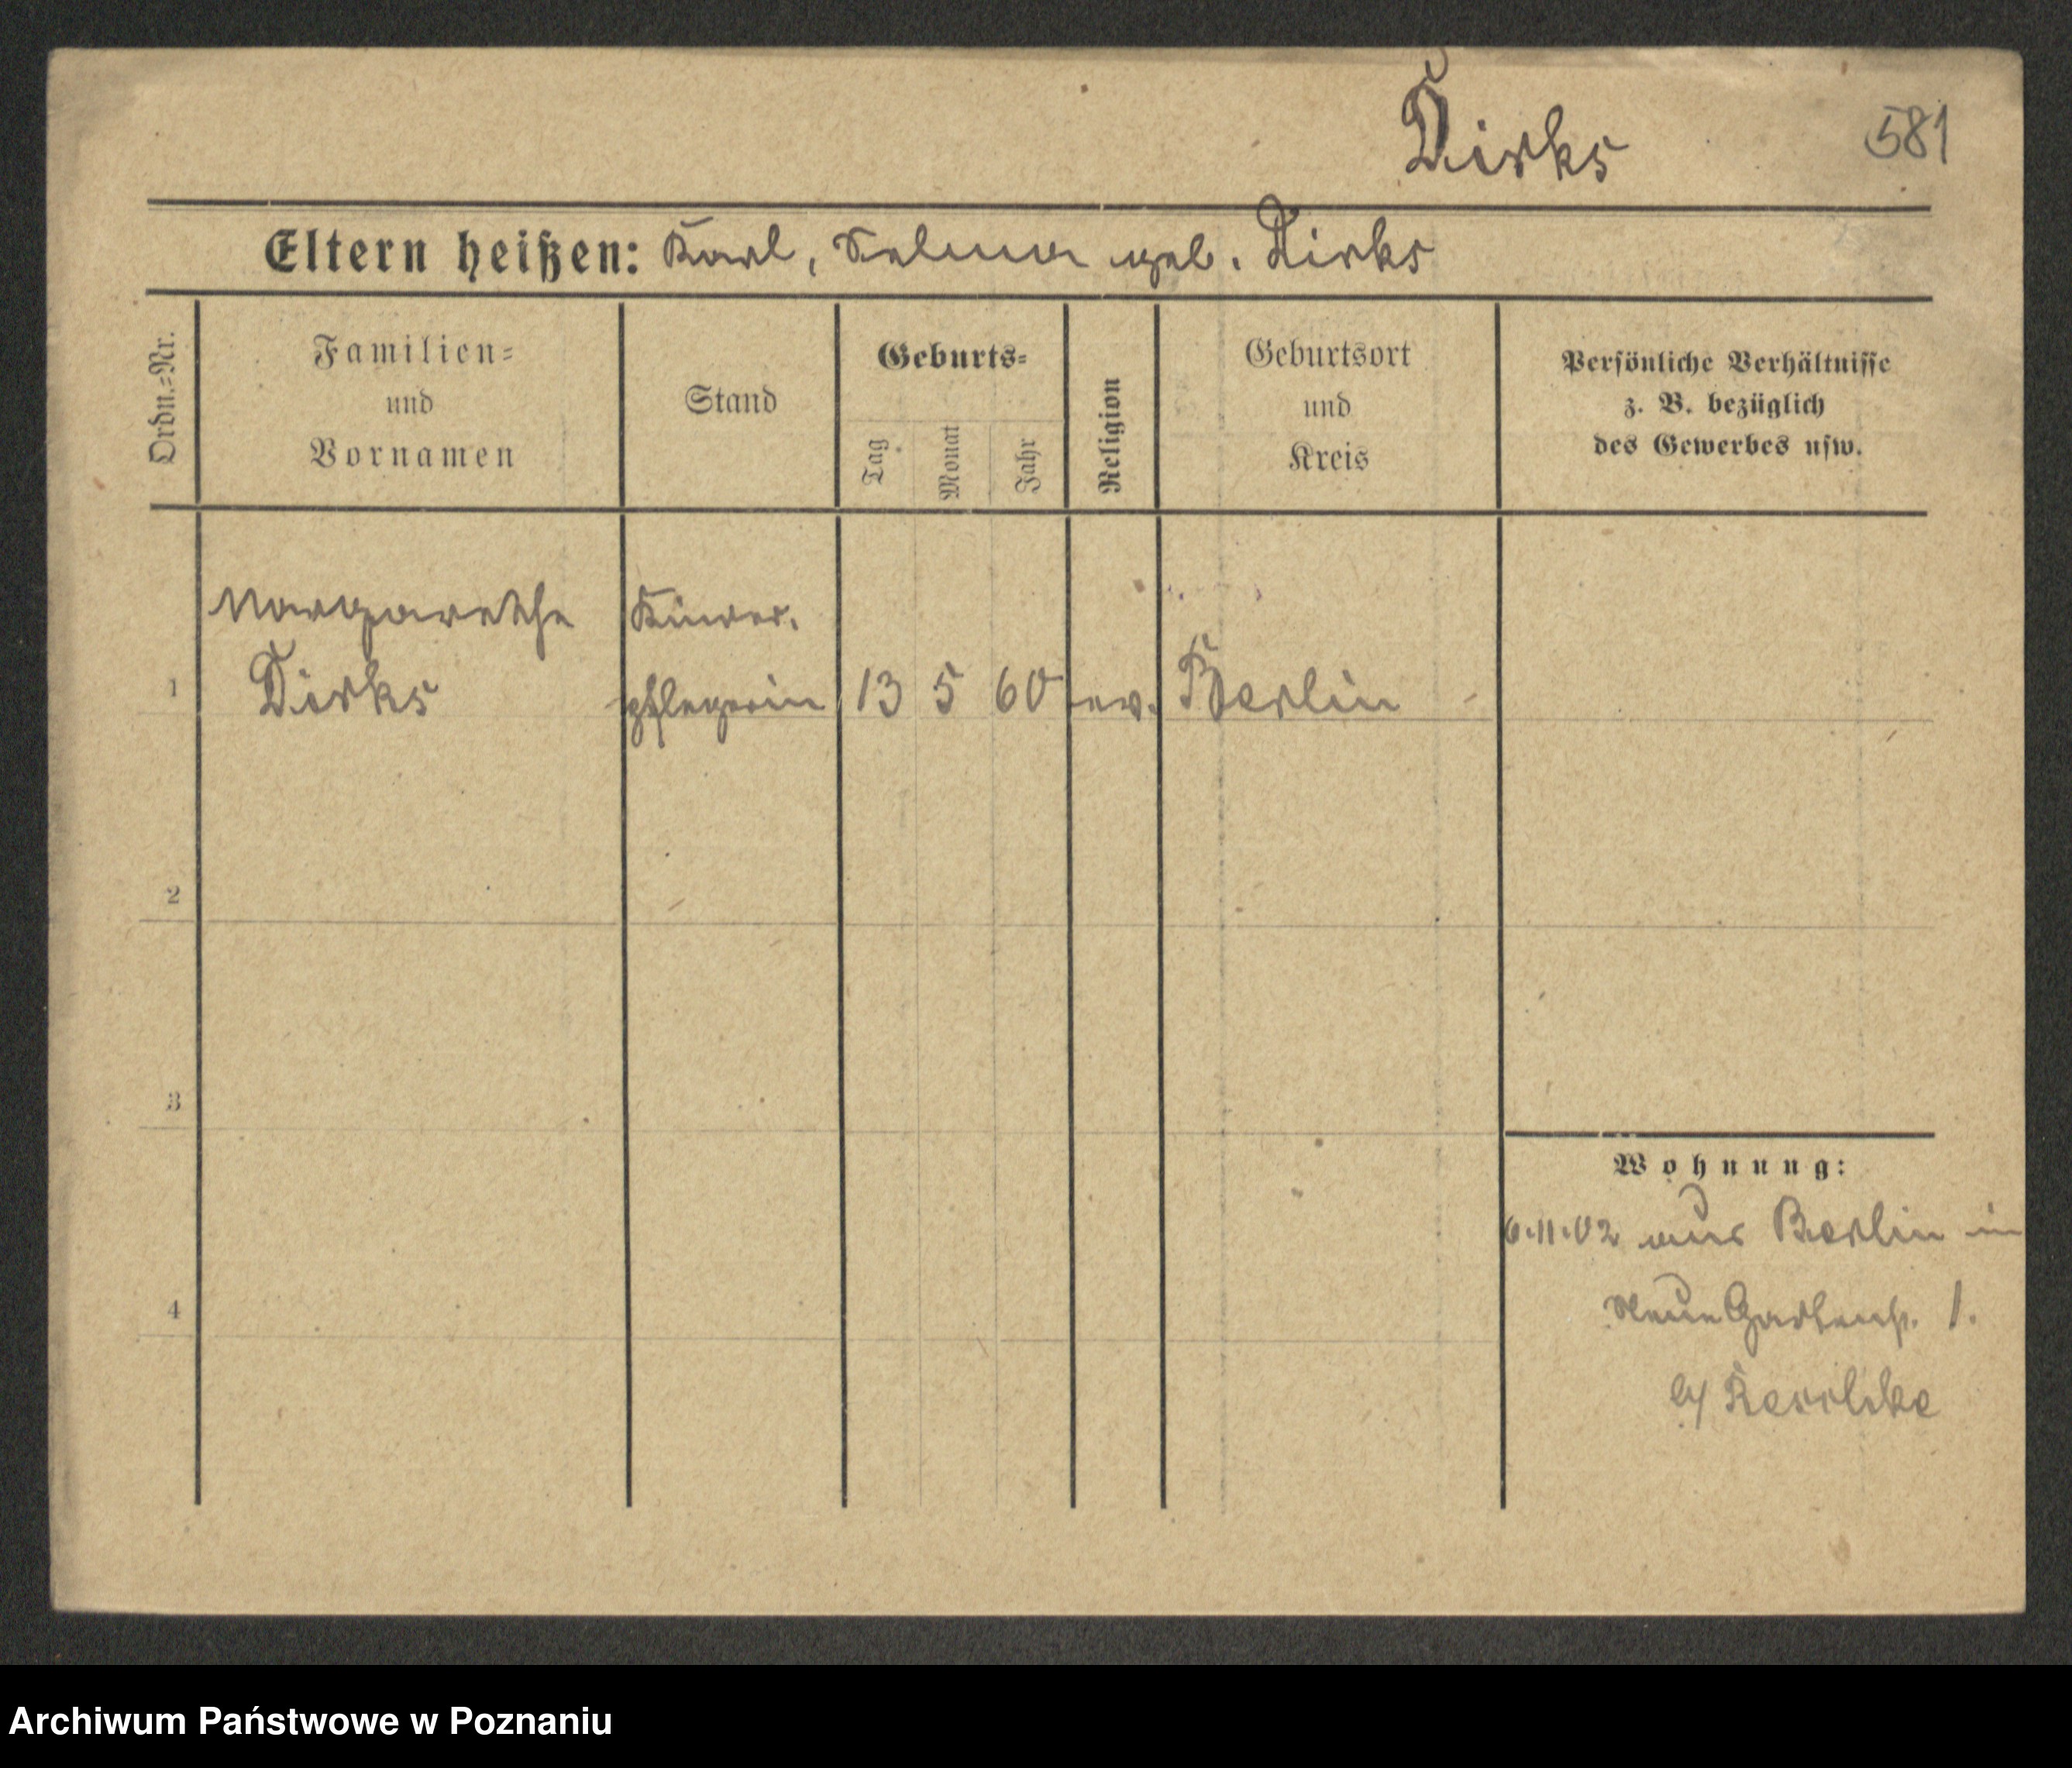 Dirks
581
Eltern heißen: Karl, Selma geb. Dirks
Ordn.=Nr.
Familien=
und
Vornamen
Stand
Geburts=
Tag
Monat
Jahr
Religion
Geburtsort
und
Kreis
Persönliche Verhältnisse
z. B. bezüglich
des Gewerbes usw.
Margarethe Kinder.
1 Dirks pflegerin 13 5 60 ev. Berlin
2
3
4
Wohnung:
6.11.02 aus Berlin in
Neue Gartenstr. 1.
Archiwum Państwowe w Poznaniu